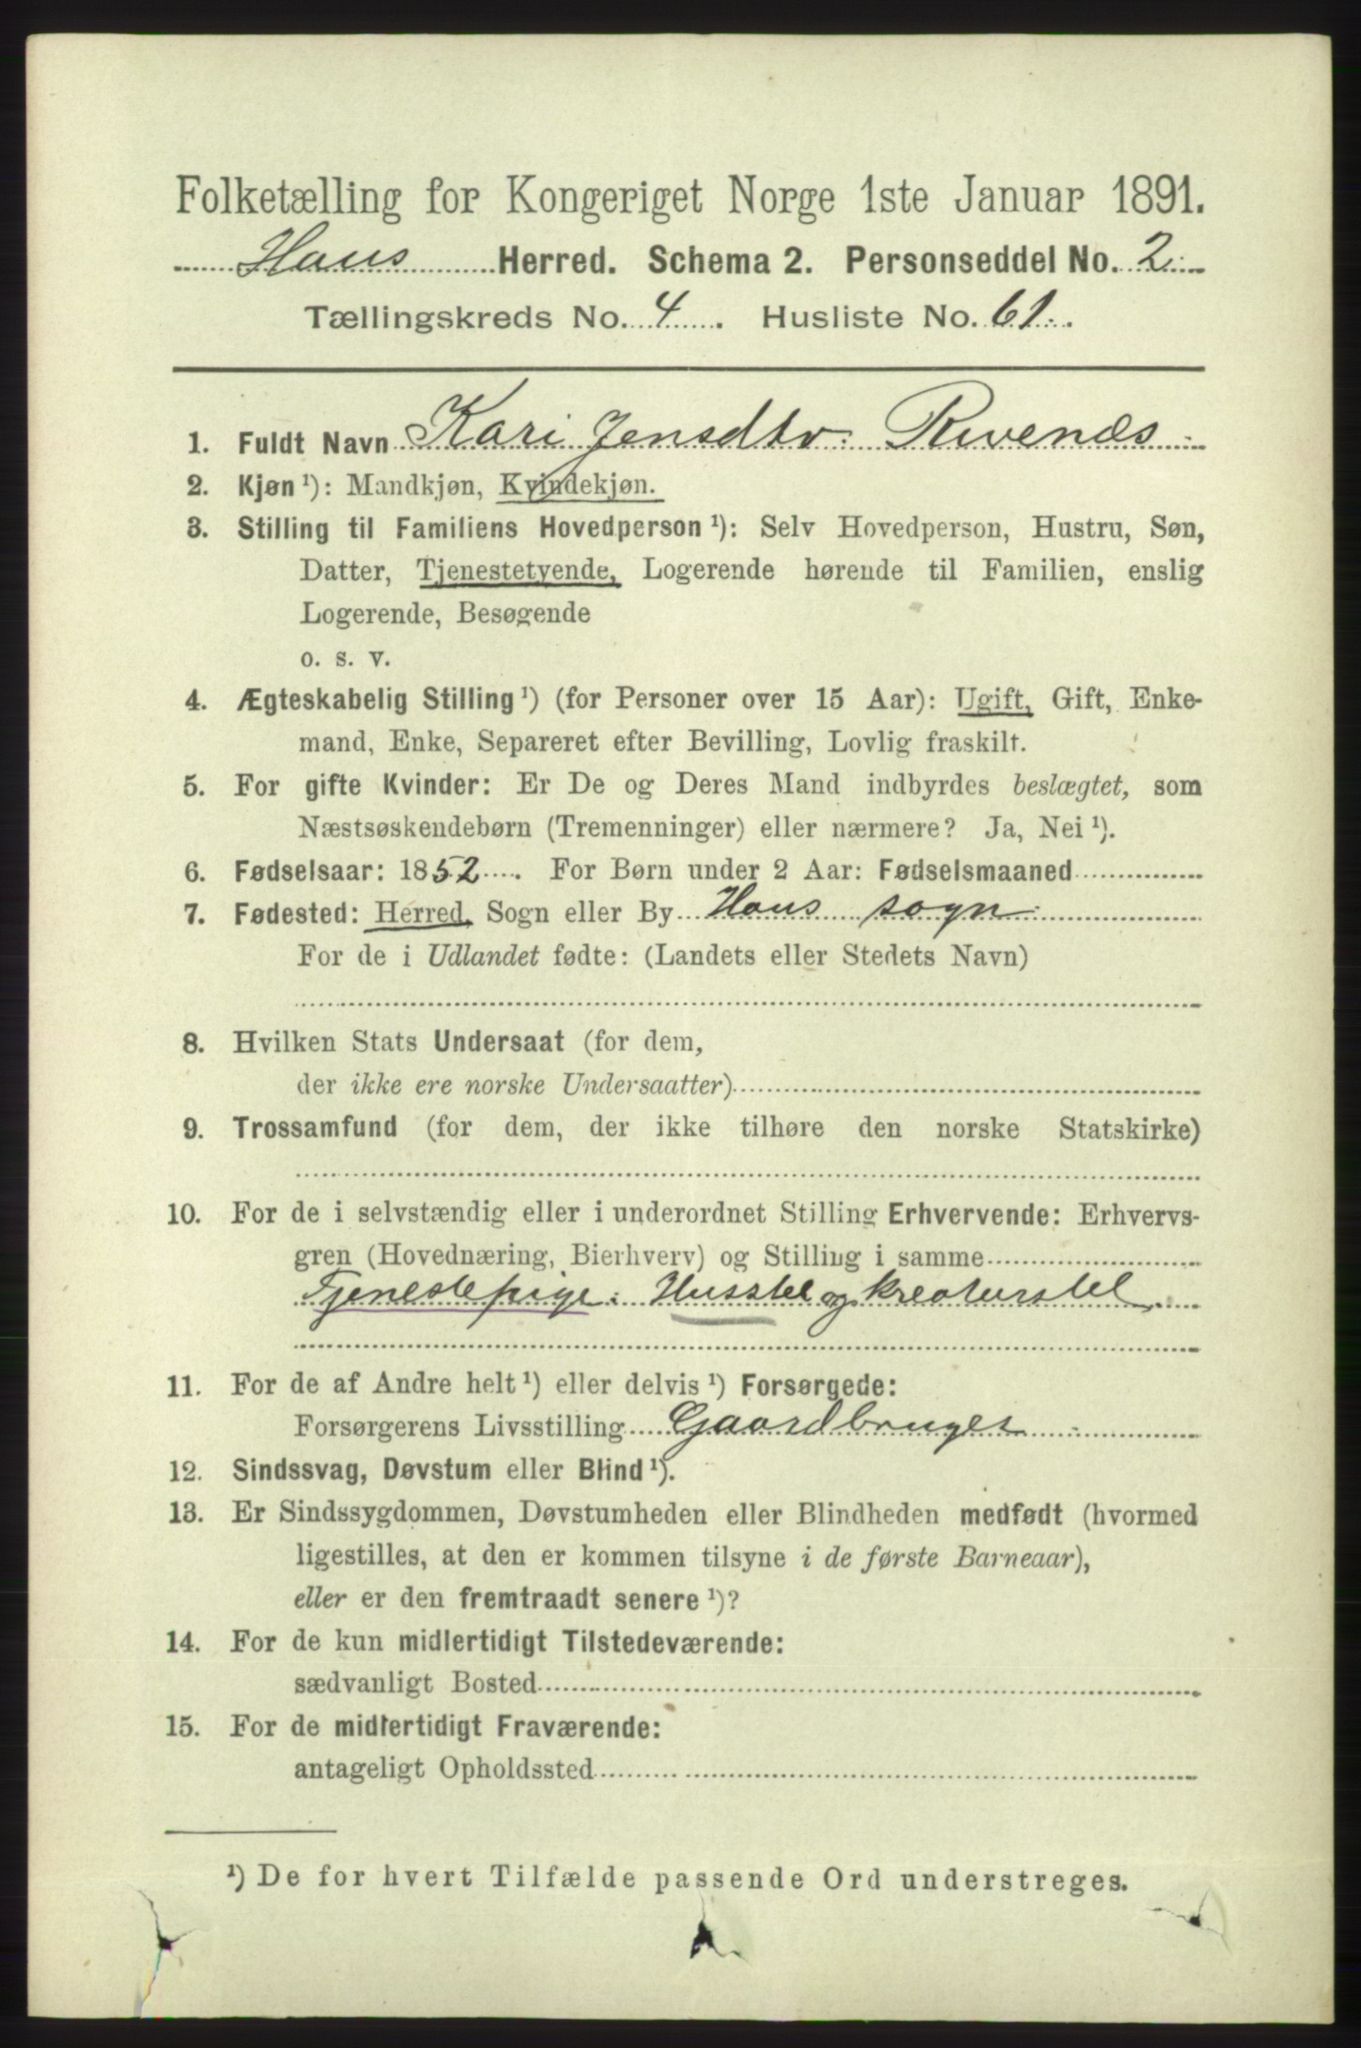 Folketælling for Kongeriget Norge 1ste Januar 1891.
Haus Herred. Schema 2. Personseddel No. 2
Tællingskreds No. 4. Husliste No. 61.
1. Fuldt Navn Kari Jensdtr. Rivenæs
2. Kjøn¹): Mandkjøn, Kvindekjøn.
3. Stilling til Familiens Hovedperson¹): Selv Hovedperson, Hustru, Søn,
Datter, Tjenestetyende, Logerende hørende til Familien, enslig
Logerende, Besøgende
o. s. v.
4. Ægteskabelig Stilling¹) (for Personer over 15 Aar): Ugift, Gift, Enke-
mand, Enke, Separeret efter Bevilling, Lovlig fraskilt.
5. For gifte Kvinder: Er De og Deres Mand indbyrdes beslægtet, som
Næstsøskendebørn (Tremenninger) eller nærmere? Ja, Nei¹).
6. Fødselsaar: 1852. For Børn under 2 Aar: Fødselsmaaned
7. Fødested: Herred, Sogn eller By Haus sogn
For de i Udlandet fødte: (Landets eller Stedets Navn)
8. Hvilken Stats Undersaat (for dem,
der ikke ere norske Undersaatter)
9. Trossamfund (for dem, der ikke tilhøre den norske Statskirke)
10. For de i selvstændig eller i underordnet Stilling Erhvervende: Erhvervs-
gren (Hovednæring, Bierhverv) og Stilling i samme
Tjenestepige. Husstel og kreaturstel
11. For de af Andre helt¹) eller delvis¹) Forsørgede:
Forsørgerens Livsstilling Gaardbruger
12. Sindssvag, Døvstum eller Blind¹).
13. Er Sindssygdommen, Døvstumheden eller Blindheden medfødt (hvormed
ligestilles, at den er kommen tilsyne i de første Barneaar),
eller er den fremtraadt senere¹)?
14. For de kun midlertidigt Tilstedeværende:
sædvanligt Bosted
15. For de midlertidigt Fraværende:
antageligt Opholdssted
¹) De for hvert Tilfælde passende Ord understreges.